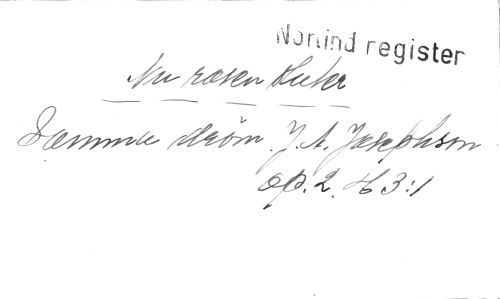 Norlind register
Nu rosen sluter
Samma dröm. J. A. Josephson
op. 2. H 3:1